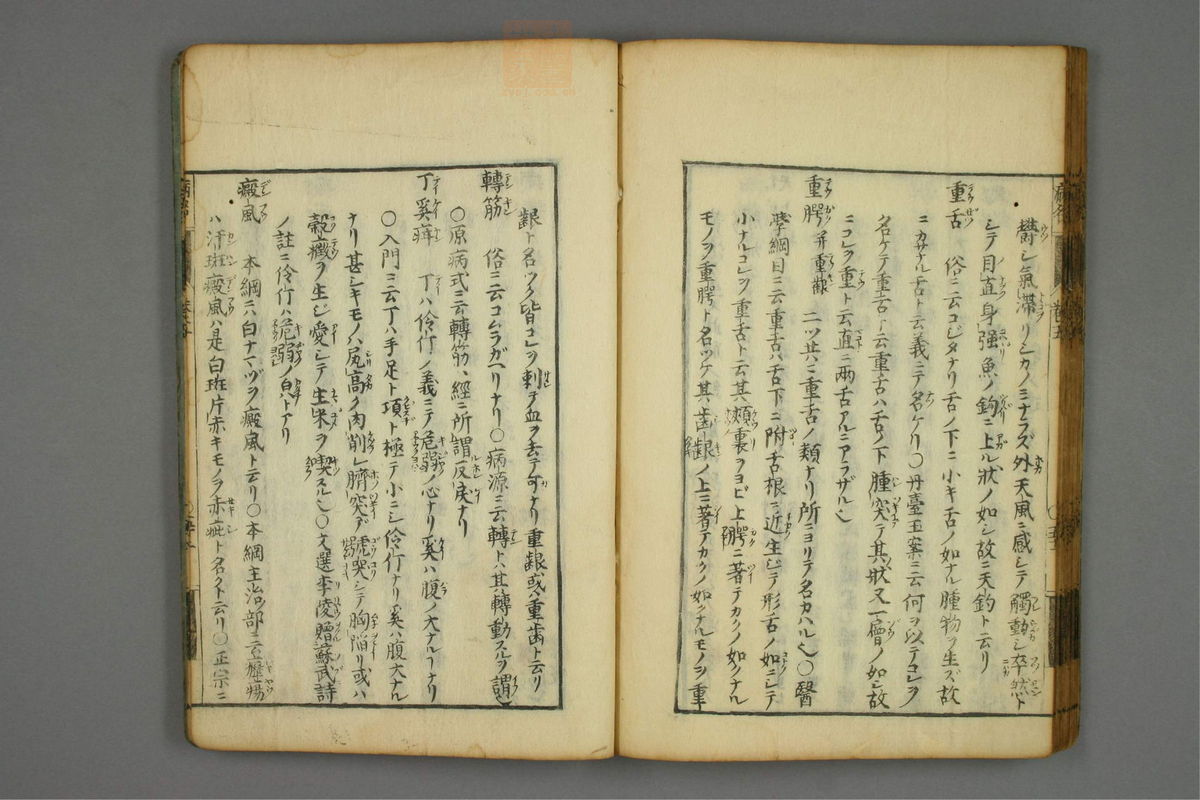 鬱シ氣滯リシカノミナラズ外天風ニ感シテ觸動シ卒然ト
シテ目直身強魚ノ鉤ニ上ル狀ノ如シ故ニ天釣ト云リ
重舌 俗ニ云コシタナリ舌ノ下ニ小キ舌ノ如ナル腫物ヲ生ズ故
ニカサナル舌ト云義ニテ名ケリ〇丹臺玉案ニ云何ヲ以テコレヲ
名ケテ重舌ト云重舌ハ舌ノ下腫突テ其狀又一層ノ如シ故
ニコレヲ重ト云直ニ兩舌アルニアラザル也
重腭并重齦 二ツ共ニ重舌ノ類ナリ所ニヨリテ名カハル也〇醫
學綱目ニ云重舌ハ舌下ニ附舌根ニ近生ジテ形舌ノ如ニシテ
小ナルコレヲ重舌ト云其頰裏ヲヨビ上腭ニ著テカクノ如クナル
モノヲ重腭ト名ツケ其齒齦ノ上ニ著テカクノ如クナルモノヲ重
齦ト名ツク皆コレヲ刺テ血ヲ去テ可ナリ重齦或ハ重齒ト云リ
轉筋 俗ニ云コムラガヘリナリ〇病源ニ云轉ハ其轉動スルヲ謂也
〇原病式ニ云轉筋ハ經ニ所謂反戾ナリ
丁奚疳 丁ハ伶仃ノ義ニテ危弱ノ心ナリ奚ハ腹ノ大ナルーナリ
〇入門ニ云丁ハ手足ト項ト極テ小ニシ伶仃ナリ奚ハ腹大ナル
ナリ甚シキモノハ尻高ク肉削レ臍突デ號哭シテ胸陷リ或ハ
穀癥ヲ生ジ愛シテ生米ヲ喫スル也〇文選李陵贈蘇武詩
ノ註ニ伶仃ハ危弱ノ皃トアリ
癜風 本綱ニハ白ナマヅヲ癜風ト云リ〇本綱主治部ニ立癧瘍
ハ汗斑癜風ハ是白斑片赤キモノヲ赤疵ト名クト云リ〇正宗ニ